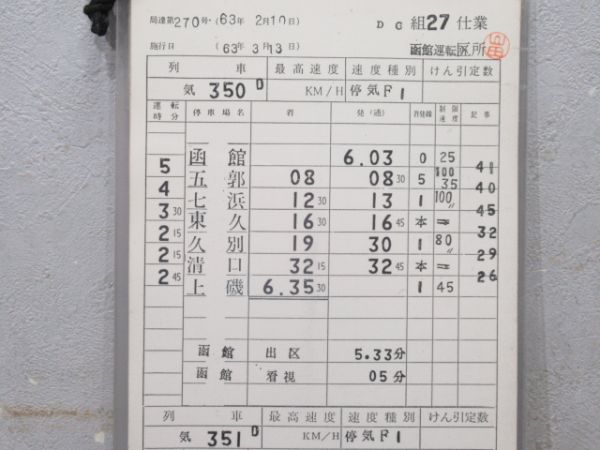 局達第270号・(63年 2月10日) D C 組27仕業
施行日 (63年 3月13日) 函館運転区所
列 車 最高速度 速度種別 けん引定数
気 350D KM/H 停気F1
運転時分 停車場名 着 発(通) 着発線 制限速度 記事
函 館 6.03 0 25
5 41
五 郭 08 08 30 5 100 35
4 40
七 浜 12 30 13 1 100 〃
3 30 45
東 久 16 30 16 45 本 =
2 15 32
久 別 19 30 1 80 〃
2 15 29
清 口 32 15 32 45 本 =
2 45 26
上 磯 6.35 30 1 45
函 館 出 区 5.33分
函 館 看 視 05分
列 車 最高速度 速度種別 けん引定数
気 351D KM/H 停気F1